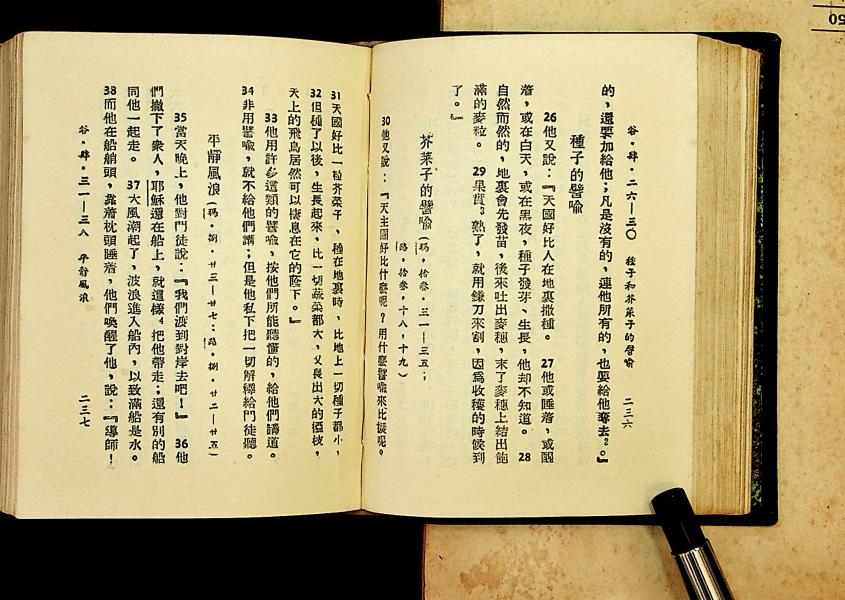 谷・肆・二六—三〇　種子和芥菜子的譬喻　二三六
的，還要加給他；凡是沒有的，連他所有的，也要給他奪去²。』
種子的譬喻
26他又說：『天國好比人在地裏撒種。27他或睡着，或醒
着，或在白天，或在黑夜，種子發芽、生長，他却不知道。28
自然而然的，地裏會先發苗，後來吐出麥穗，末了麥穗上結出飽
滿的麥粒。29果實³熟了，就用鐮刀來割，因爲收穫的時候到
了。』
芥菜子的譬喻(瑪・拾叁・三一—三五；
路・拾叁・十八，十九)
30他又說：『天主國好比什麼呢？用什麼譬喻來比擬呢。
31天國好比一粒芥菜子，種在地裏時，比地上一切種子都小，
32但種了以後，生長起來，比一切蔬菜都大，又長出大的枝，
天上的飛鳥居然可以棲息在它的蔭下。』
33他用許多這類的譬喻，按他們所能聽懂的，給他們講道。
34非用譬喻，就不給他們講；但是他私下把一切解釋給門徒聽。
平靜風浪(瑪・捌・廿三—廿七；路・捌・廿二—廿五)
35當天晚上，他對門徒說：『我們渡到對岸去吧！』36他
們撇下了衆人，耶穌還在船上，就這樣⁴把他帶走；還有別的船
同他一起走。37大風潮起了，波浪進入船內，以致滿船是水。
38而他在船艄頭，靠着枕頭睡着，他們喚醒了他，說：『導師！
谷・肆・三一—三八　平靜風浪　二三七
50